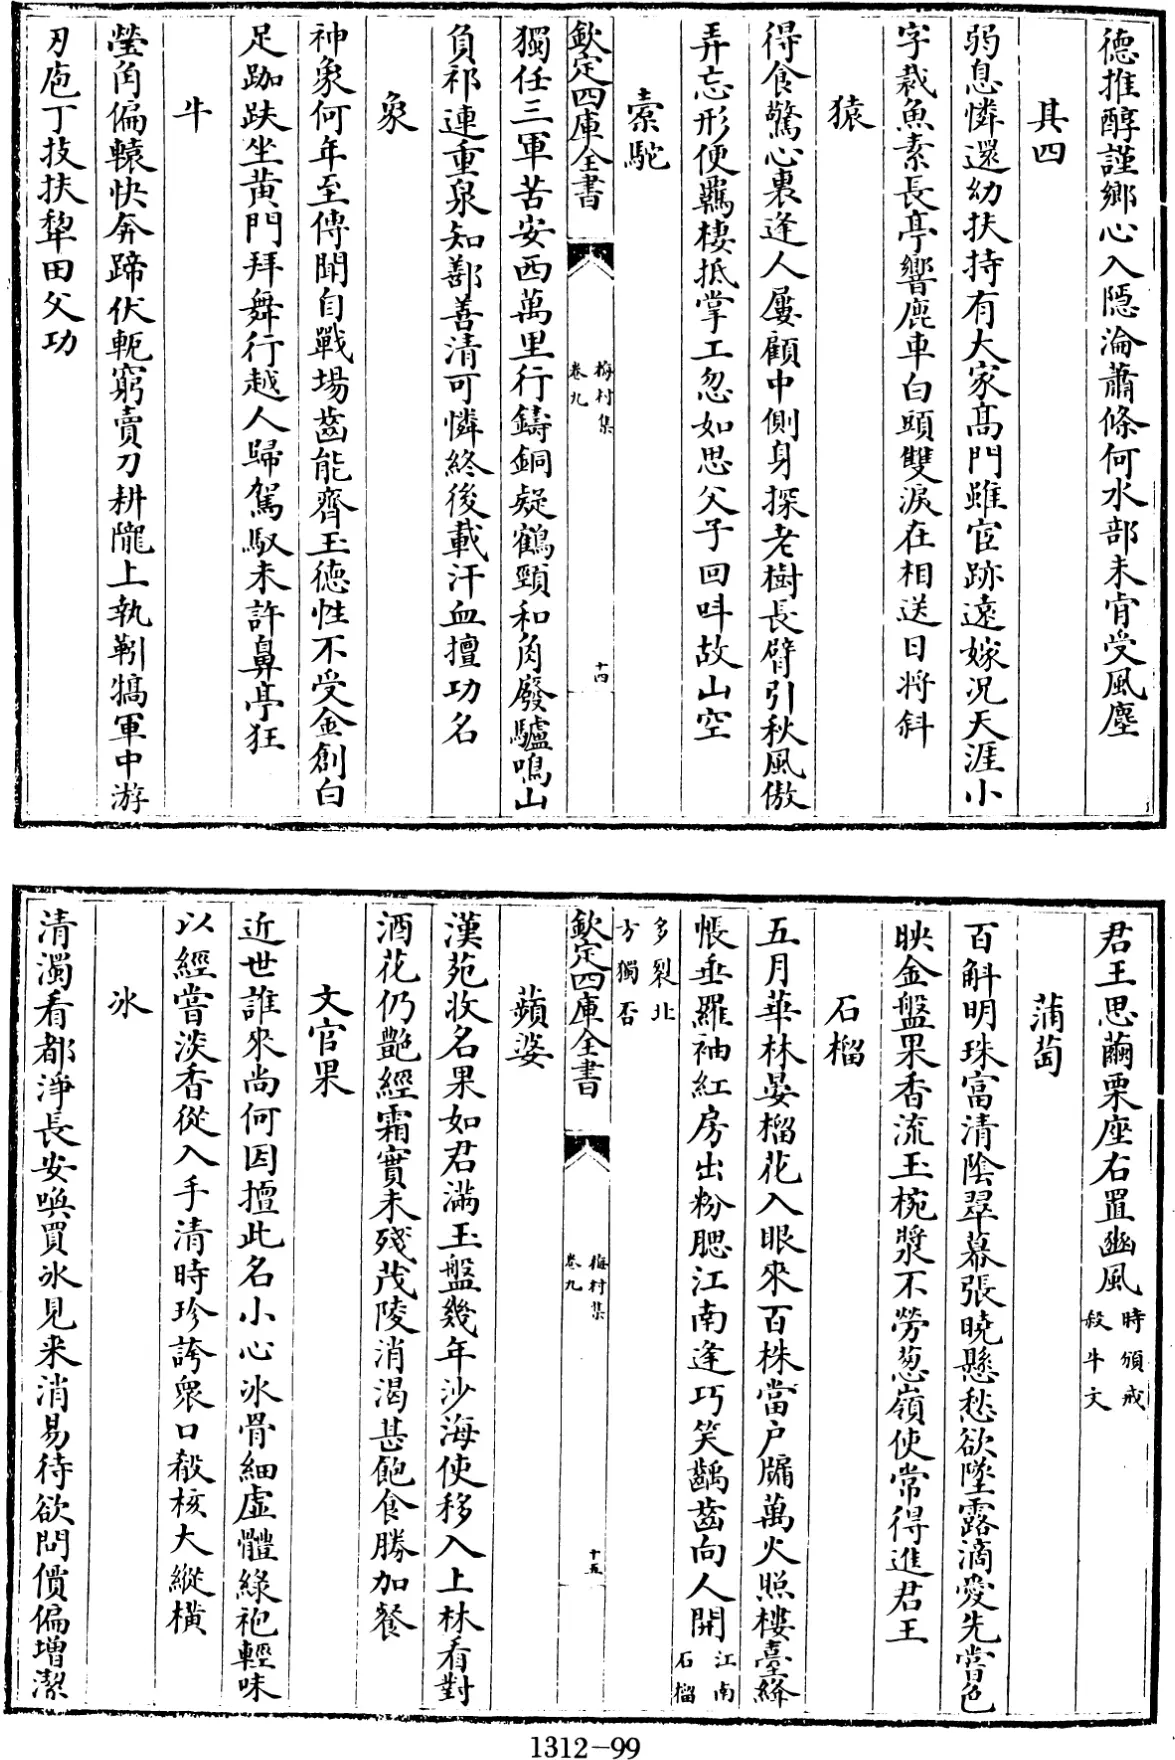 德推醇謹鄉心入隱淪蕭條何水部未肯受風塵
其四
弱息憐還幼扶持有大家髙門雖宦跡遠嫁況天涯小
字裁魚素長亭響鹿車白頭雙淚在相送日將斜
猿
得食驚心裏逢人屢顧中側身探老樹長臂引秋風傲
弄忘形便羈棲抵掌工忽如思父子回呌故山空
槖駝
欽定四庫全書
梅村集
卷九
十四
獨任三軍苦安西萬里行鑄銅疑鶴頸和角廢驢鳴山
負祁連重泉知鄯善清可憐終後載汗血擅功名
象
神象何年至傳聞自戰場齒能齊玉德性不受金創白
足跏趺坐黃門拜舞行越人歸駕馭未許鼻亭狂
牛
瑩角偏轅快奔蹄伏軛窮賣刀耕隴上執靷犒軍中游
刃庖丁技扶犂田父功
君王思繭栗座右置豳風
時頒戒
殺牛文
蒲萄
百斛明珠富清隂翠幕張曉懸愁欲墜露滴愛先嘗色
映金盤果香流玉椀漿不勞葱嶺使常得進君王
石榴
五月華林晏榴花入眼來百株當户牖萬火照樓臺絳
帳垂羅袖紅房出粉腮江南逢巧笑齲齒向人開
江南
石榴
多裂北
方獨否
欽定四庫全書
梅村集
卷九
十五
蘋婆
漢苑收名果如君滿玉盤幾年沙海使移入上林看對
酒花仍艷經霜實未殘茂陵消渴甚飽食勝加餐
文官果
近世誰來尚何因擅此名小心冰骨細虛體緑袍輕味
以經嘗淡香從入手清時珍誇衆口殽核大縱橫
冰
清濁看都淨長安喚買冰見来消易待欲問價偏增潔
1312-99